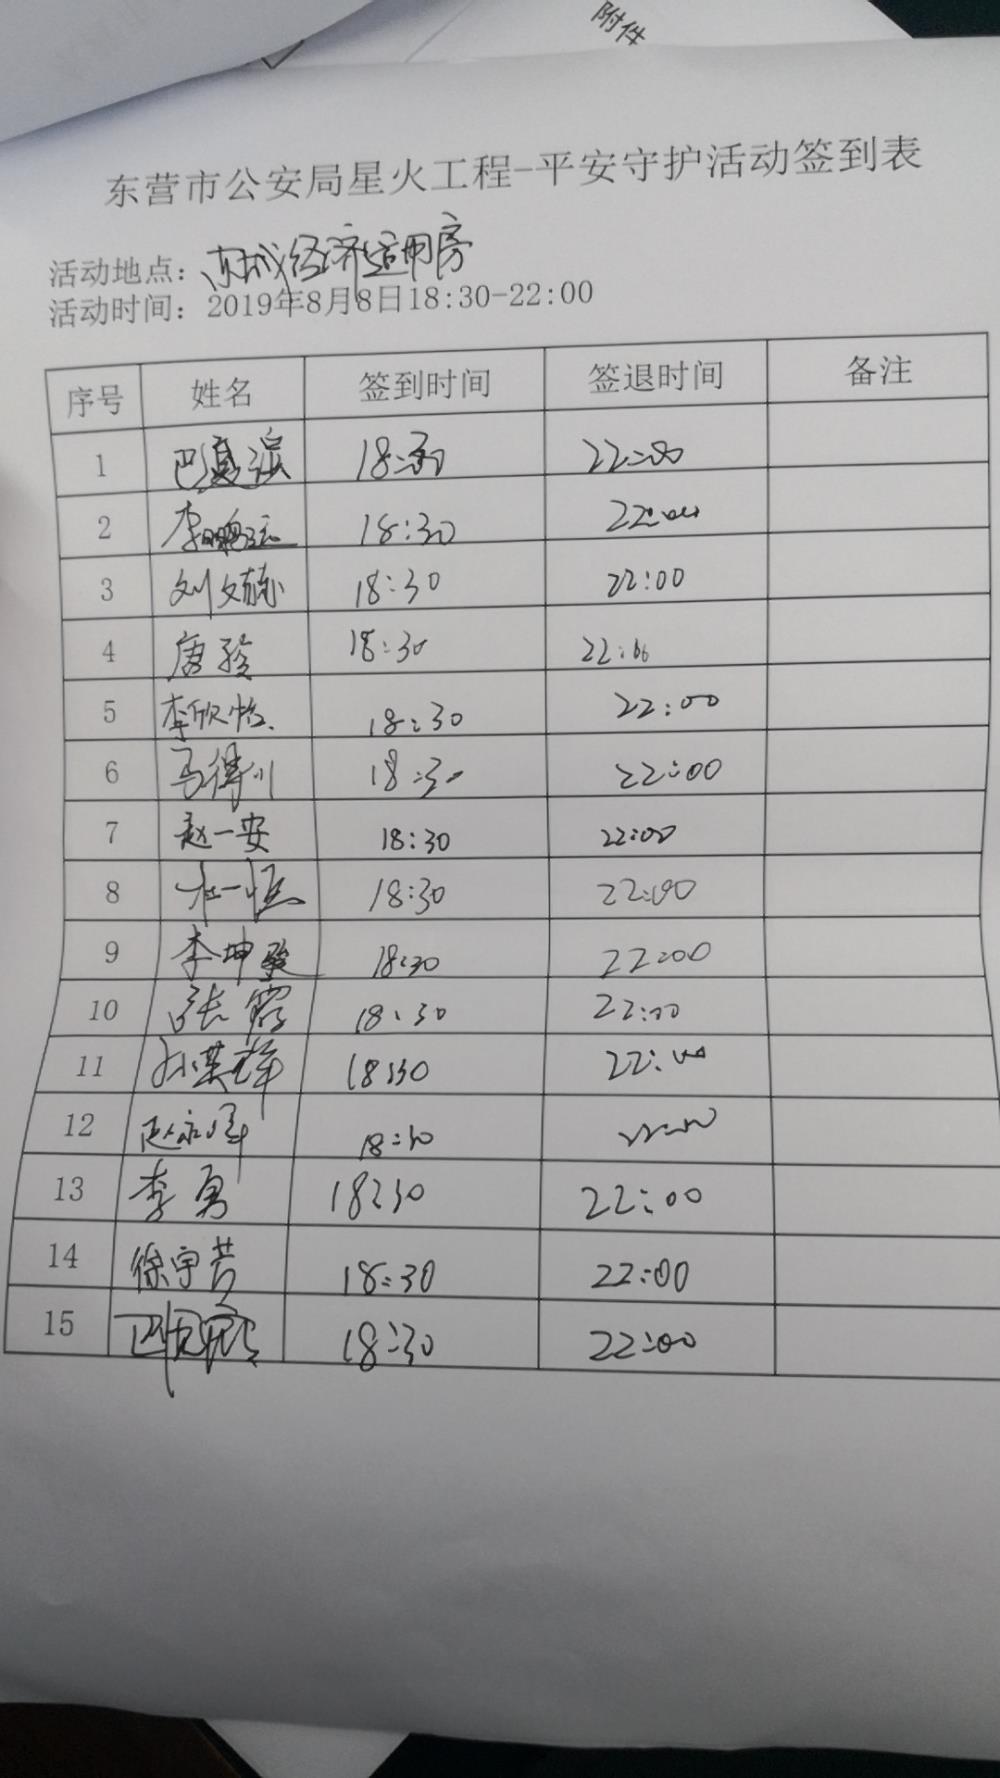 附件
东营市公安局星火工程-平安守护活动签到表
活动地点：东城经济适用房
活动时间：2019年8月8日18:30-22:00
序号 姓名 签到时间 签退时间 备注
1 18:30 22:00
2 李鹏 18:30 22:00
3 刘文 18:30 22:00
4 唐 18:30 22:00
5 李欣怡 18:30 22:00
6 马得川 18:30 22:00
7 赵一安 18:30 22:00
8 杜一恒 18:30 22:00
9 李坤 18:30 22:00
10 张 18:30 22:00
11 孙 18:30 22:00
12 赵 18:30 22:00
13 李勇 18:30 22:00
14 徐宇 18:30 22:00
15 18:30 22:00